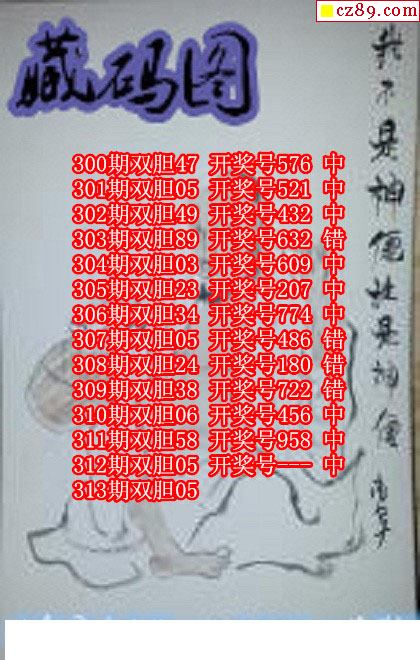 cz89.com
藏码图
300期双胆47 开奖号576 中
301期双胆05 开奖号521 中
302期双胆49 开奖号432 中
303期双胆89 开奖号632 错
304期双胆03 开奖号609 中
305期双胆23 开奖号207 中
306期双胆34 开奖号774 中
307期双胆05 开奖号486 错
308期双胆24 开奖号180 错
309期双胆38 开奖号722 错
310期双胆06 开奖号456 中
311期双胆58 开奖号958 中
312期双胆05 开奖号--- 中
313期双胆05
我不是神但他是神